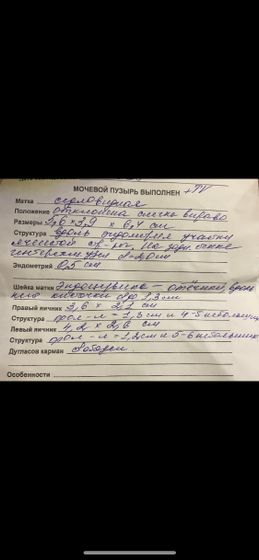 МОЧЕВОЙ ПУЗЫРЬ ВЫПОЛНЕН +TV
Матка седловидная
Положение отклонена слегка вправо
Размеры 5,6 × 3,9 × 6,4 см
Структура вдоль эндометрия участки
ячеистой стр-ры, по задн. стенке
d = 2,0 см
Эндометрий 0,5 см
Шейка матки Эндоцервикс –
кисточки до 1,3 см
Правый яичник 3,6 × 2,2 см
Структура фол-л = 1,5 см и 4-5 небольших
Левый яичник 4,2 × 2,6 см
Структура фол-л = 1,2 см и 5-6 небольших
Дугласов карман свободен
Особенности